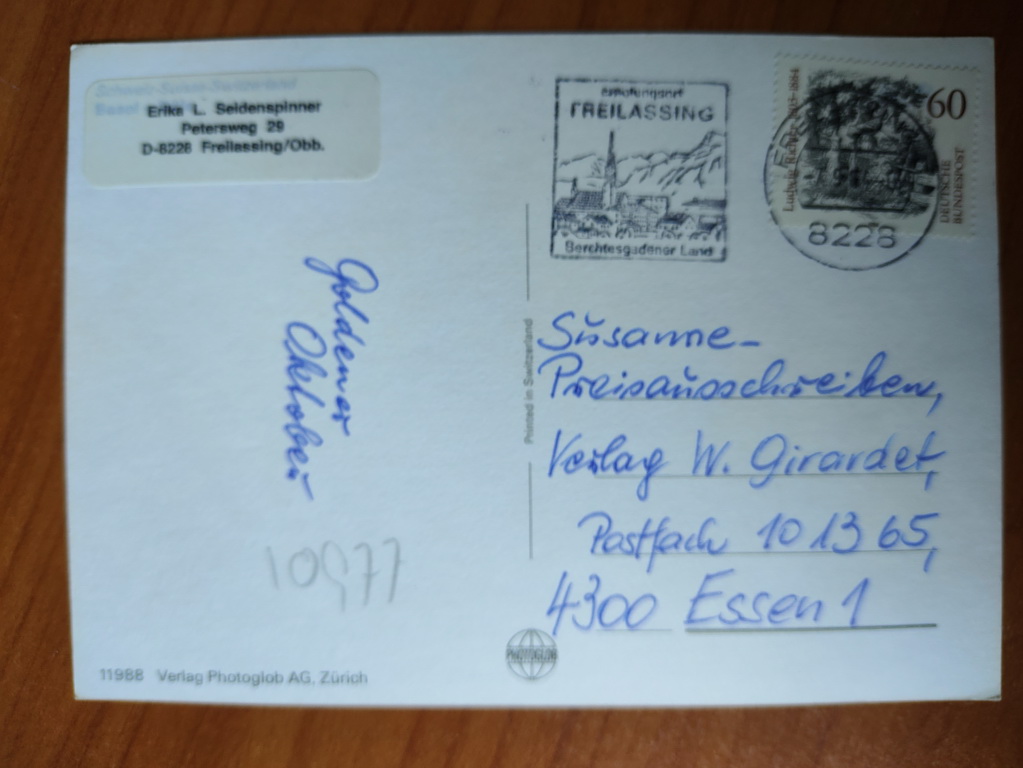 Schweiz-Suisse-Switzerland
Basel
Erika L. Seidenspinner
Petersweg 29
D-8228 Freilassing/Obb.
Erholungsort
FREILASSING
Berchtesgadener Land
Ludwig Richter 1803-1884
60
DEUTSCHE
BUNDESPOST
8228
Goldener
Oktober
10977
Printed in Switzerland
Susanne-
Preisausschreiben,
Verlag W. Girardet,
Postfach 10 13 65,
4300 Essen 1
PHOTOGLOB
11988 Verlag Photoglob AG, Zürich